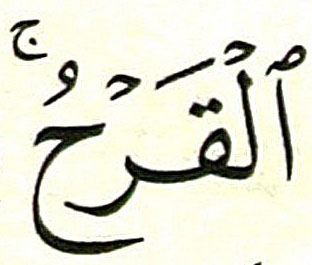 ٱلْقَرْحُ ۚ